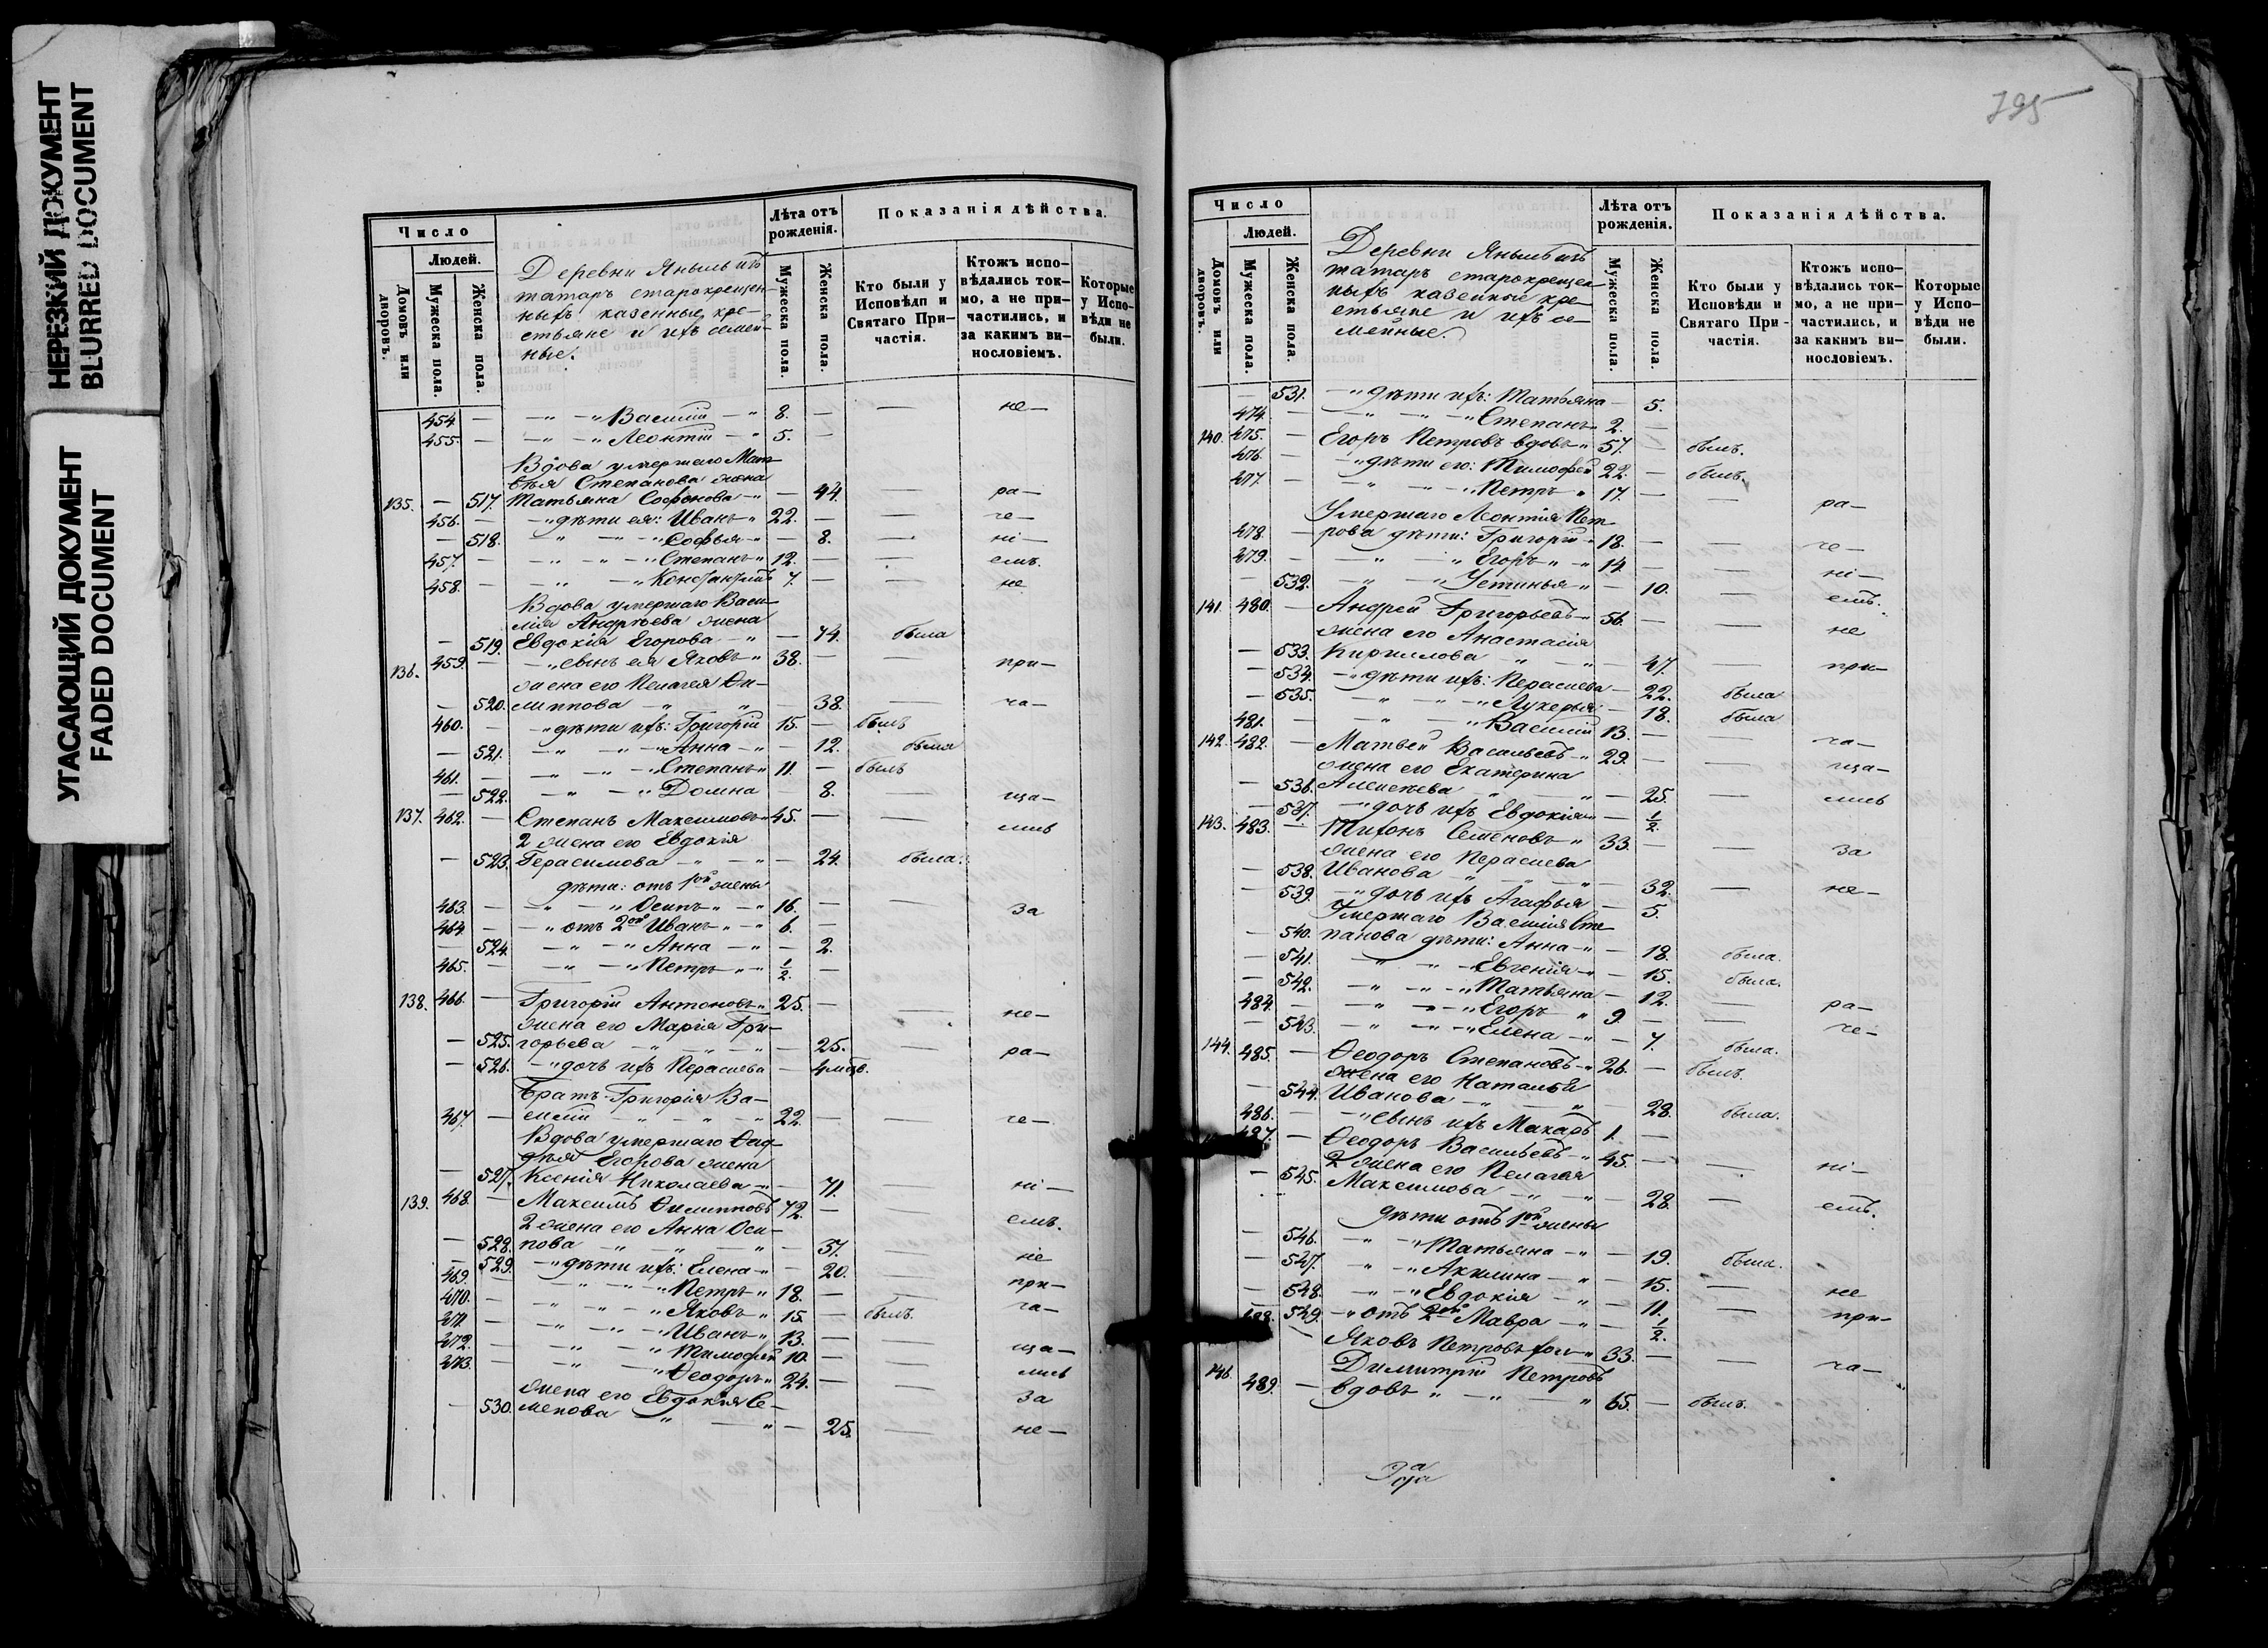 НЕРЕЗКИЙ ДОКУМЕНТ
BLURRED DOCUMENT
УГАСАЮЩИЙ ДОКУМЕНТ
FADED DOCUMENT
Число
Людей.
Домовъ или дворовъ.
Мужеска пола.
Женска пола.
Деревни Яныль изъ
татаръ старокрещен-
ныхъ казенные кре-
стьяне и ихъ семей-
ные.
Лѣта отъ рожденія.
Мужеска пола.
Женска пола.
Показанія дѣйства.
Кто были у Исповѣди и Святаго При-частія.
Ктожъ испо-вѣдались ток-мо, а не при-частились, и за какимъ ви-нословіемъ.
Которые у Испо-вѣди не были.
454. — — " — " Василій — " 8. — — не—
455. — — " — " Леонтій — " 5. —
Вдова умершаго Мат-
вѣя Степанова жена
135. — 517. Татьяна Софонова — " — 44. — ра—
456. — — " дѣти ея: Иванъ — " 22. — — че—
— 518. — " — " — " Софья — " — 8. — ні—
457. — — " — " — " Степанъ " 12. — — емъ.
458. — — " — " Константинъ 7. — — не
Вдова умершаго Васи-
лія Андрѣева жена
— 519. Евдокія Егорова — " — 74. была
136. 459. — — " сынъ ея Яковъ — " 38. — — при—
жена его Пелагея Фи-
— 520. липпова — " — " — 38. — ча—
460. — — " дѣти ихъ: Григорій 15. — былъ
— 521. — " — " — " Анна — " — 12. была
461. — — " — " — " Степанъ " 11. — былъ
— 522. — " — " Домна — 8. — ща—
137. 462. — Степанъ Максимовъ " 45. — — лись
2 жена его Евдокія
— 523. Герасимова — " — " — 24. была.
дѣти: отъ 1ой жены
463. — — " — " Осипъ " — " 16. — — за
464. — — " отъ 2ой Иванъ " — " 6. —
— 524. — " — " Анна — " — 2.
465. — — " — " Петръ " — " 1/2. —
138. 466. — Григорій Антоновъ " 25. — — не—
жена его Марія Гри-
— 525. горьева — " — " — " — 25. — ра—
— 526. — " дочь ихъ Параскева — 4 мѣс.
Братъ Григорія Ва-
467. — силій " — " — " 22. — — че—
Вдова умершаго Фад-
дѣя Егорова жена
— 527. Ксенія Николаева — " — 71. — ні—
139. 468. — Максимъ Филипповъ 72. — — емъ.
2 жена его Анна Оси-
— 528. пова — " — " — " — 37. — не
— 529. — " дѣти ихъ: Елена — " — 20. — при—
469. — — " — " — " Петръ — " 18. — — ча—
470. — — " — " — " Яковъ — " 15. — былъ.
471. — — " — " — " Иванъ — " 13. — — ща—
472. — — " — " Тимофей 10. — — лись
473. — — " — " Ѳеодоръ " 24. — — за
жена его Евдокія Се-
— 530. менова — " — " — 25. — не—
795
Число
Людей.
Домовъ или дворовъ.
Мужеска пола.
Женска пола.
Деревни Яныль изъ
татаръ старокрещен-
ныхъ казенные кре-
стьяне и ихъ се-
мейные.
Лѣта отъ рожденія.
Мужеска пола.
Женска пола.
Показанія дѣйства.
Кто были у Исповѣди и Святаго При-частія.
Ктожъ испо-вѣдались ток-мо, а не при-частились, и за какимъ ви-нословіемъ.
Которые у Испо-вѣди не были.
— 531. — " дѣти ихъ: Татьяна — 5.
474. — — " — " — " Степанъ " 2. —
140. 475. — Егоръ Петровъ вдовъ — " 57. — былъ.
476. — — " дѣти его: Тимофей 22. — былъ.
477. — — " — " — " Петръ — " 17. — — ра—
Умершаго Леонтія Пет-
478. — рова дѣти: Григорій — " 18. — — че—
479. — — " — " Егоръ " — " 14. — — ні—
— 532. — " — " Устинья — " — 10. — емъ.
141. 480. — Андрей Григорьевъ — " 56. — — не
жена его Анастасія
— 533. Кириллова " — " — 47. — при—
— 534. — " дѣти ихъ: Параскева — 22. была
— 535. — " — " — " Лукерья — 18. была
481. — — " — " Василій 13. — — ча—
142. 482. — Матвей Васильевъ — " 29. — — ща—
жена его Екатерина
— 536. Алексѣева " — " — 25. — лись
— 537. — " дочь ихъ Евдокія — " — 1/2.
143. 483. — Тихонъ Семеновъ — " 33. — — за
жена его Параскева
— 538. Иванова — " — " — 32. — не—
— 539. — " дочь ихъ Агафья — 5.
Умершаго Василія Сте-
— 540. панова дѣти: Анна — " — 18. была.
— 541. — " — " Евгенія — " — 15. была.
— 542. — " — " — " Татьяна — 12. — ра—
484. — — " — " — " Егоръ — " 9. — — че—
— 543. — " — " — " Елена — " — 7. была.
144. 485. — Ѳеодоръ Степановъ — " 26. — былъ.
жена его Наталья
— 544. Иванова — " — " — 28. была.
486. — — " сынъ ихъ Макаръ 1. —
487. — Ѳеодоръ Васильевъ — " 45. — — ні—
2 жена его Пелагея
— 545. Максимова — " — " — 28. — емъ.
дѣти отъ 1ой жены
— 546. — " — " Татьяна — " — 19. была.
— 547. — " — " Акилина — " — 15. — не
— 548. — " — " Евдокія — " — 11. — при—
549. — " отъ 2ой Мавра — " — 1/2.
488. Яковъ Петровъ хол. " 33. — — ча—
Димитрій Петровъ
146. 489. — вдовъ " — " — " 65. — былъ.